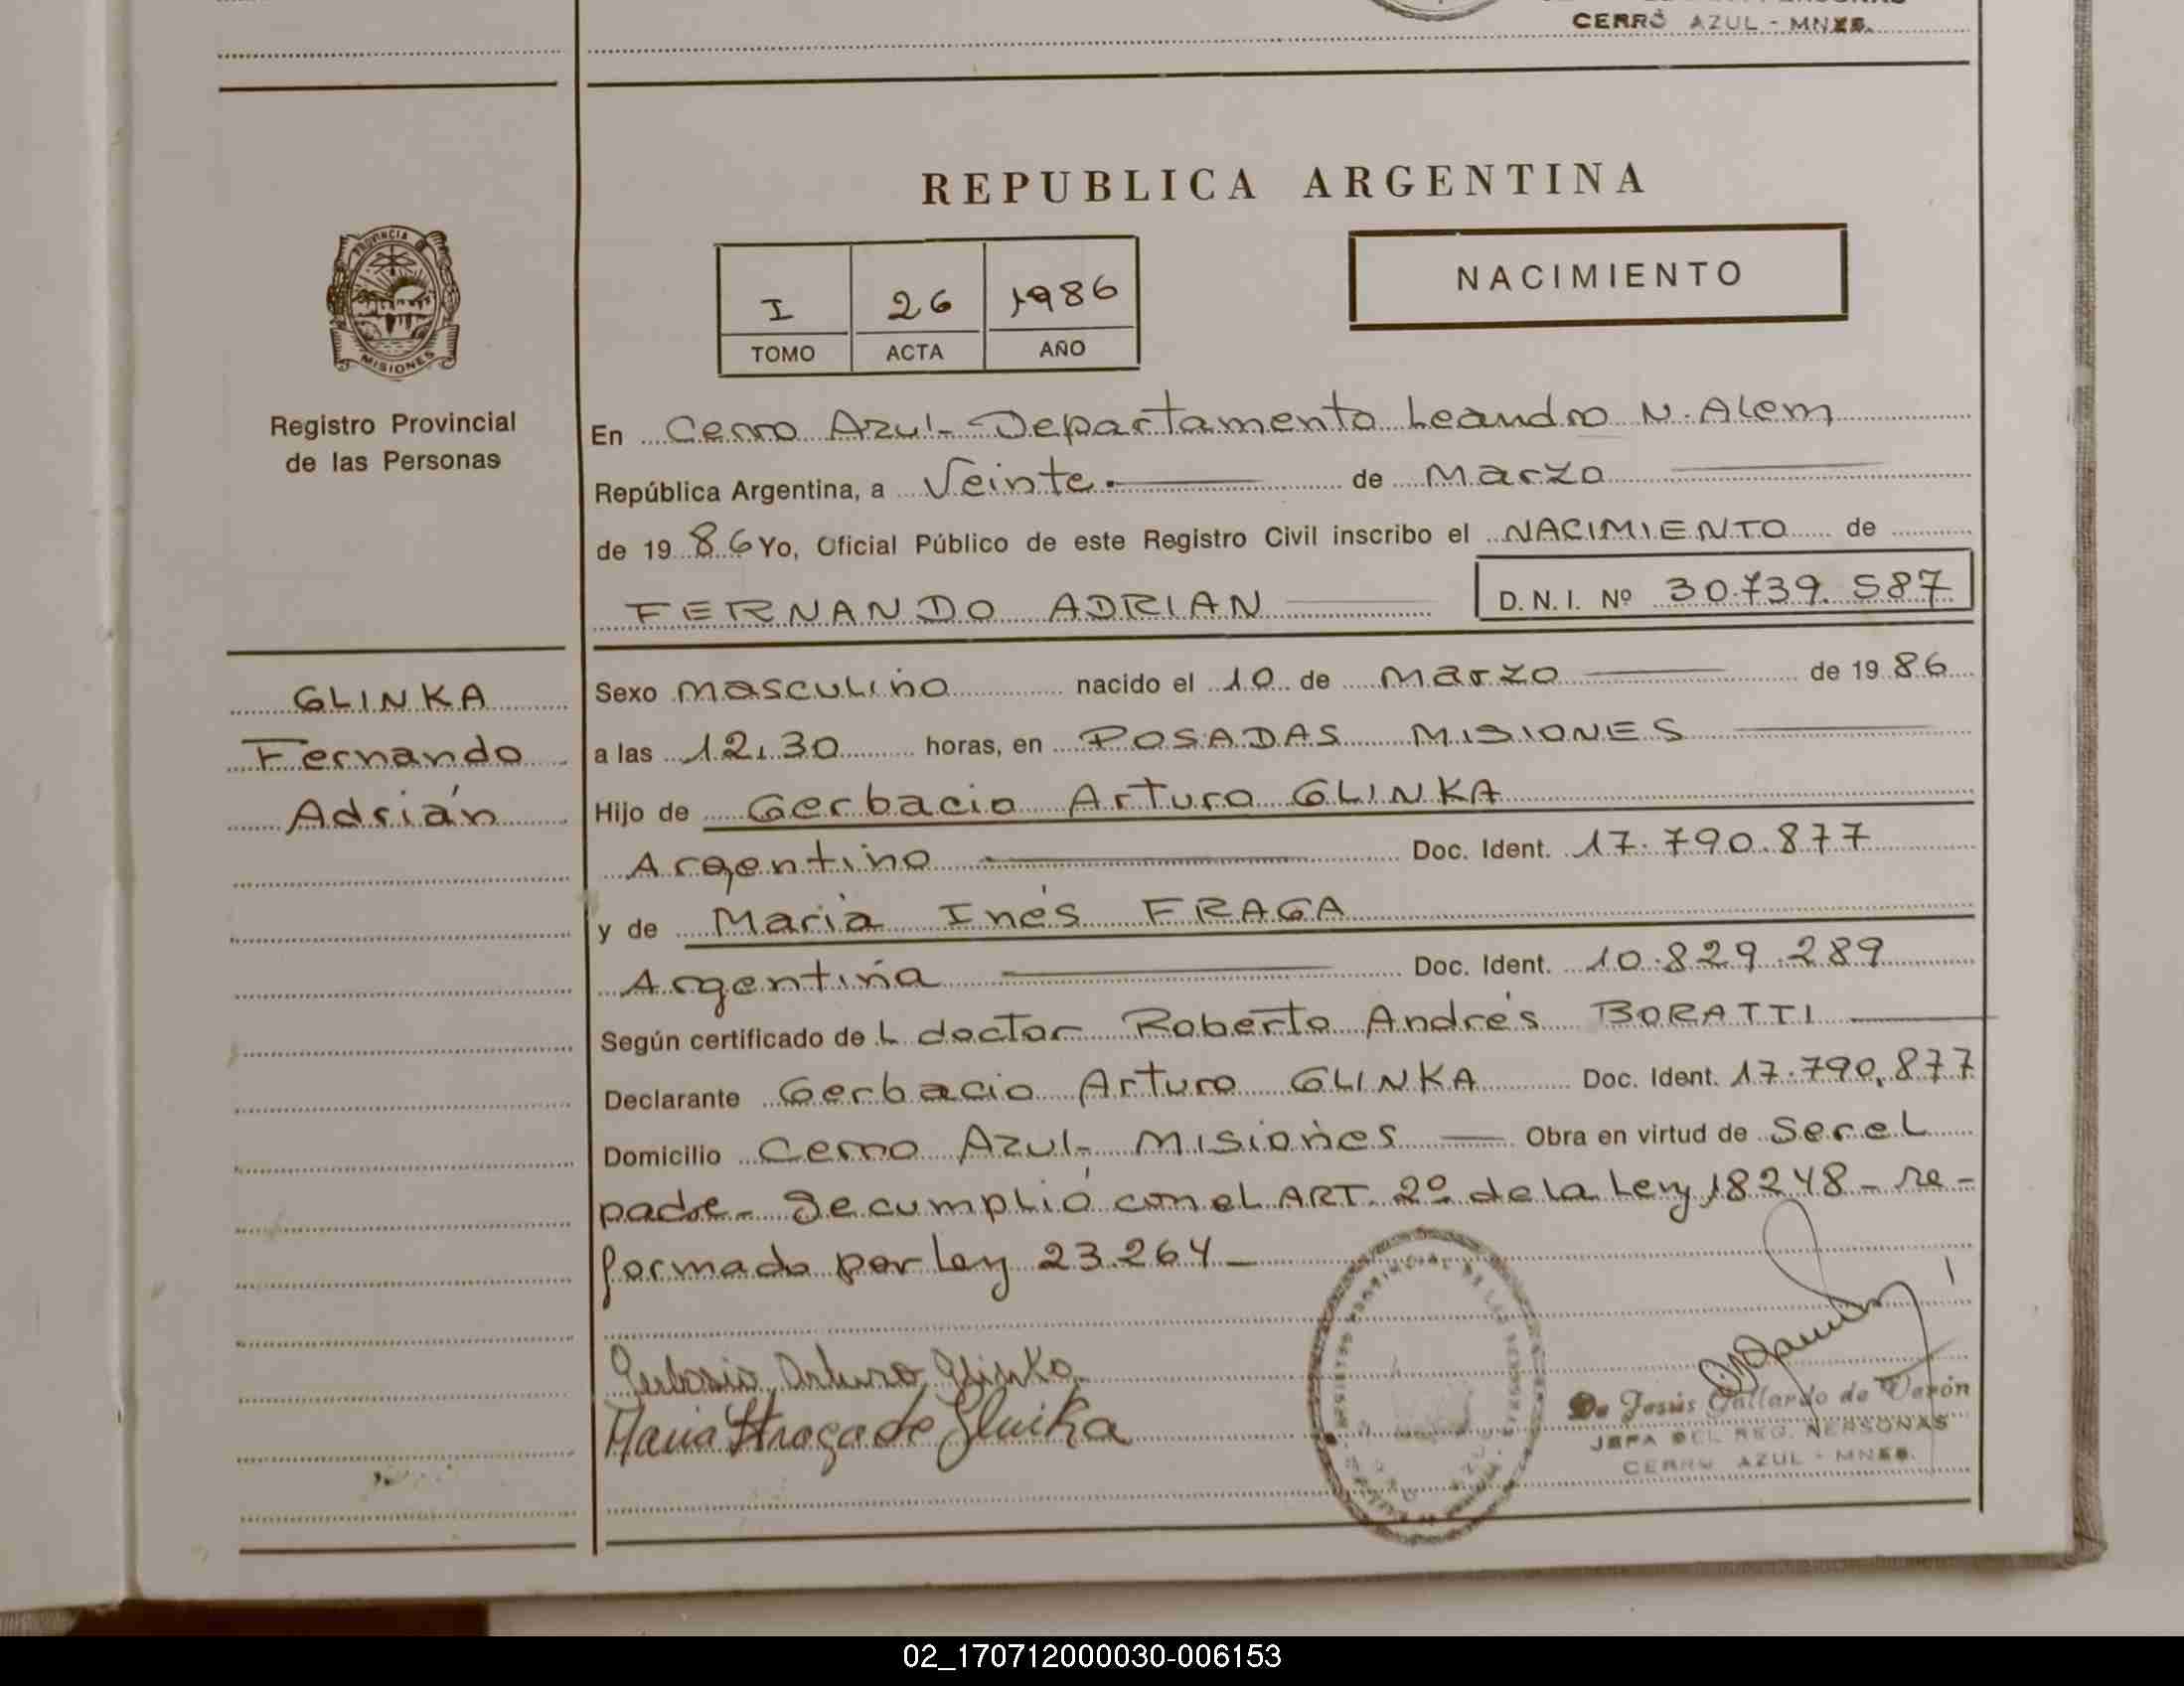 CERRO AZUL - MNES.
REPUBLICA ARGENTINA
PROVINCIA DE
MISIONES
NACIMIENTO
I 26 1986
TOMO ACTA AÑO
Registro Provincial
de las Personas
En Cerro Azul - Departamento Leandro N. Alem
República Argentina, a Veinte. de Marzo
de 1986 Yo, Oficial Público de este Registro Civil inscribo el NACIMIENTO de
FERNANDO ADRIAN D.N.I. Nº 30.739.587
GLINKA
Fernando
Adrián
Sexo masculino nacido el 10 de Marzo de 1986
a las 12,30 horas, en POSADAS MISIONES
Hijo de Gerbacio Arturo GLINKA
Argentino Doc. Ident. 17.790.877
y de Maria Inés FRAGA
Argentina Doc. Ident. 10.829.289
Según certificado de L doctor Roberto Andrés BORATTI
Declarante Gerbacio Arturo GLINKA Doc. Ident. 17.790.877
Domicilio Cerro Azul - Misiones Obra en virtud de Ser el
padre - Se cumplió con el ART. 2º de la Ley 18248 - re-
formado por Ley 23.264 -
Gerbasio Arturo Glinka
Maria I Fraga de Glinka
De Jesús Gallardo de Varón
JEFA DEL REG. PERSONAS
CERRO AZUL - MNES.
02_170712000030-006153